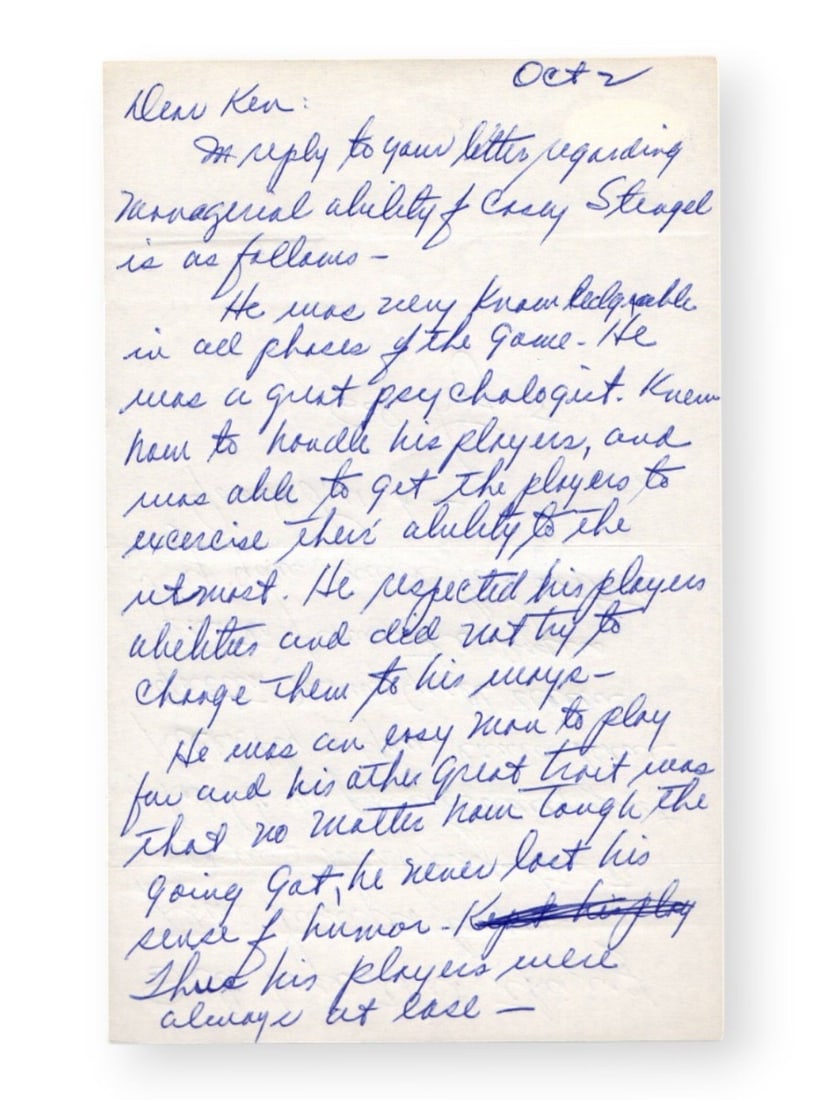 Oct 2
Dear Ken:
In reply to your letter regarding
managerial ability of Casey Stengel
is as follows -
He was very knowledgeable
in all phases of the game - He
was a great psychologist. Knew
how to handle his players, and
was able to get the players to
excercise their ability to the
utmost. He respected his players
abilities and did not try to
change them to his ways -
He was an easy man to play
for and his other great trait was
that no matter how tough the
going got, he never lost his
sense of humor - Kept his play
Thus his players were
always at ease -